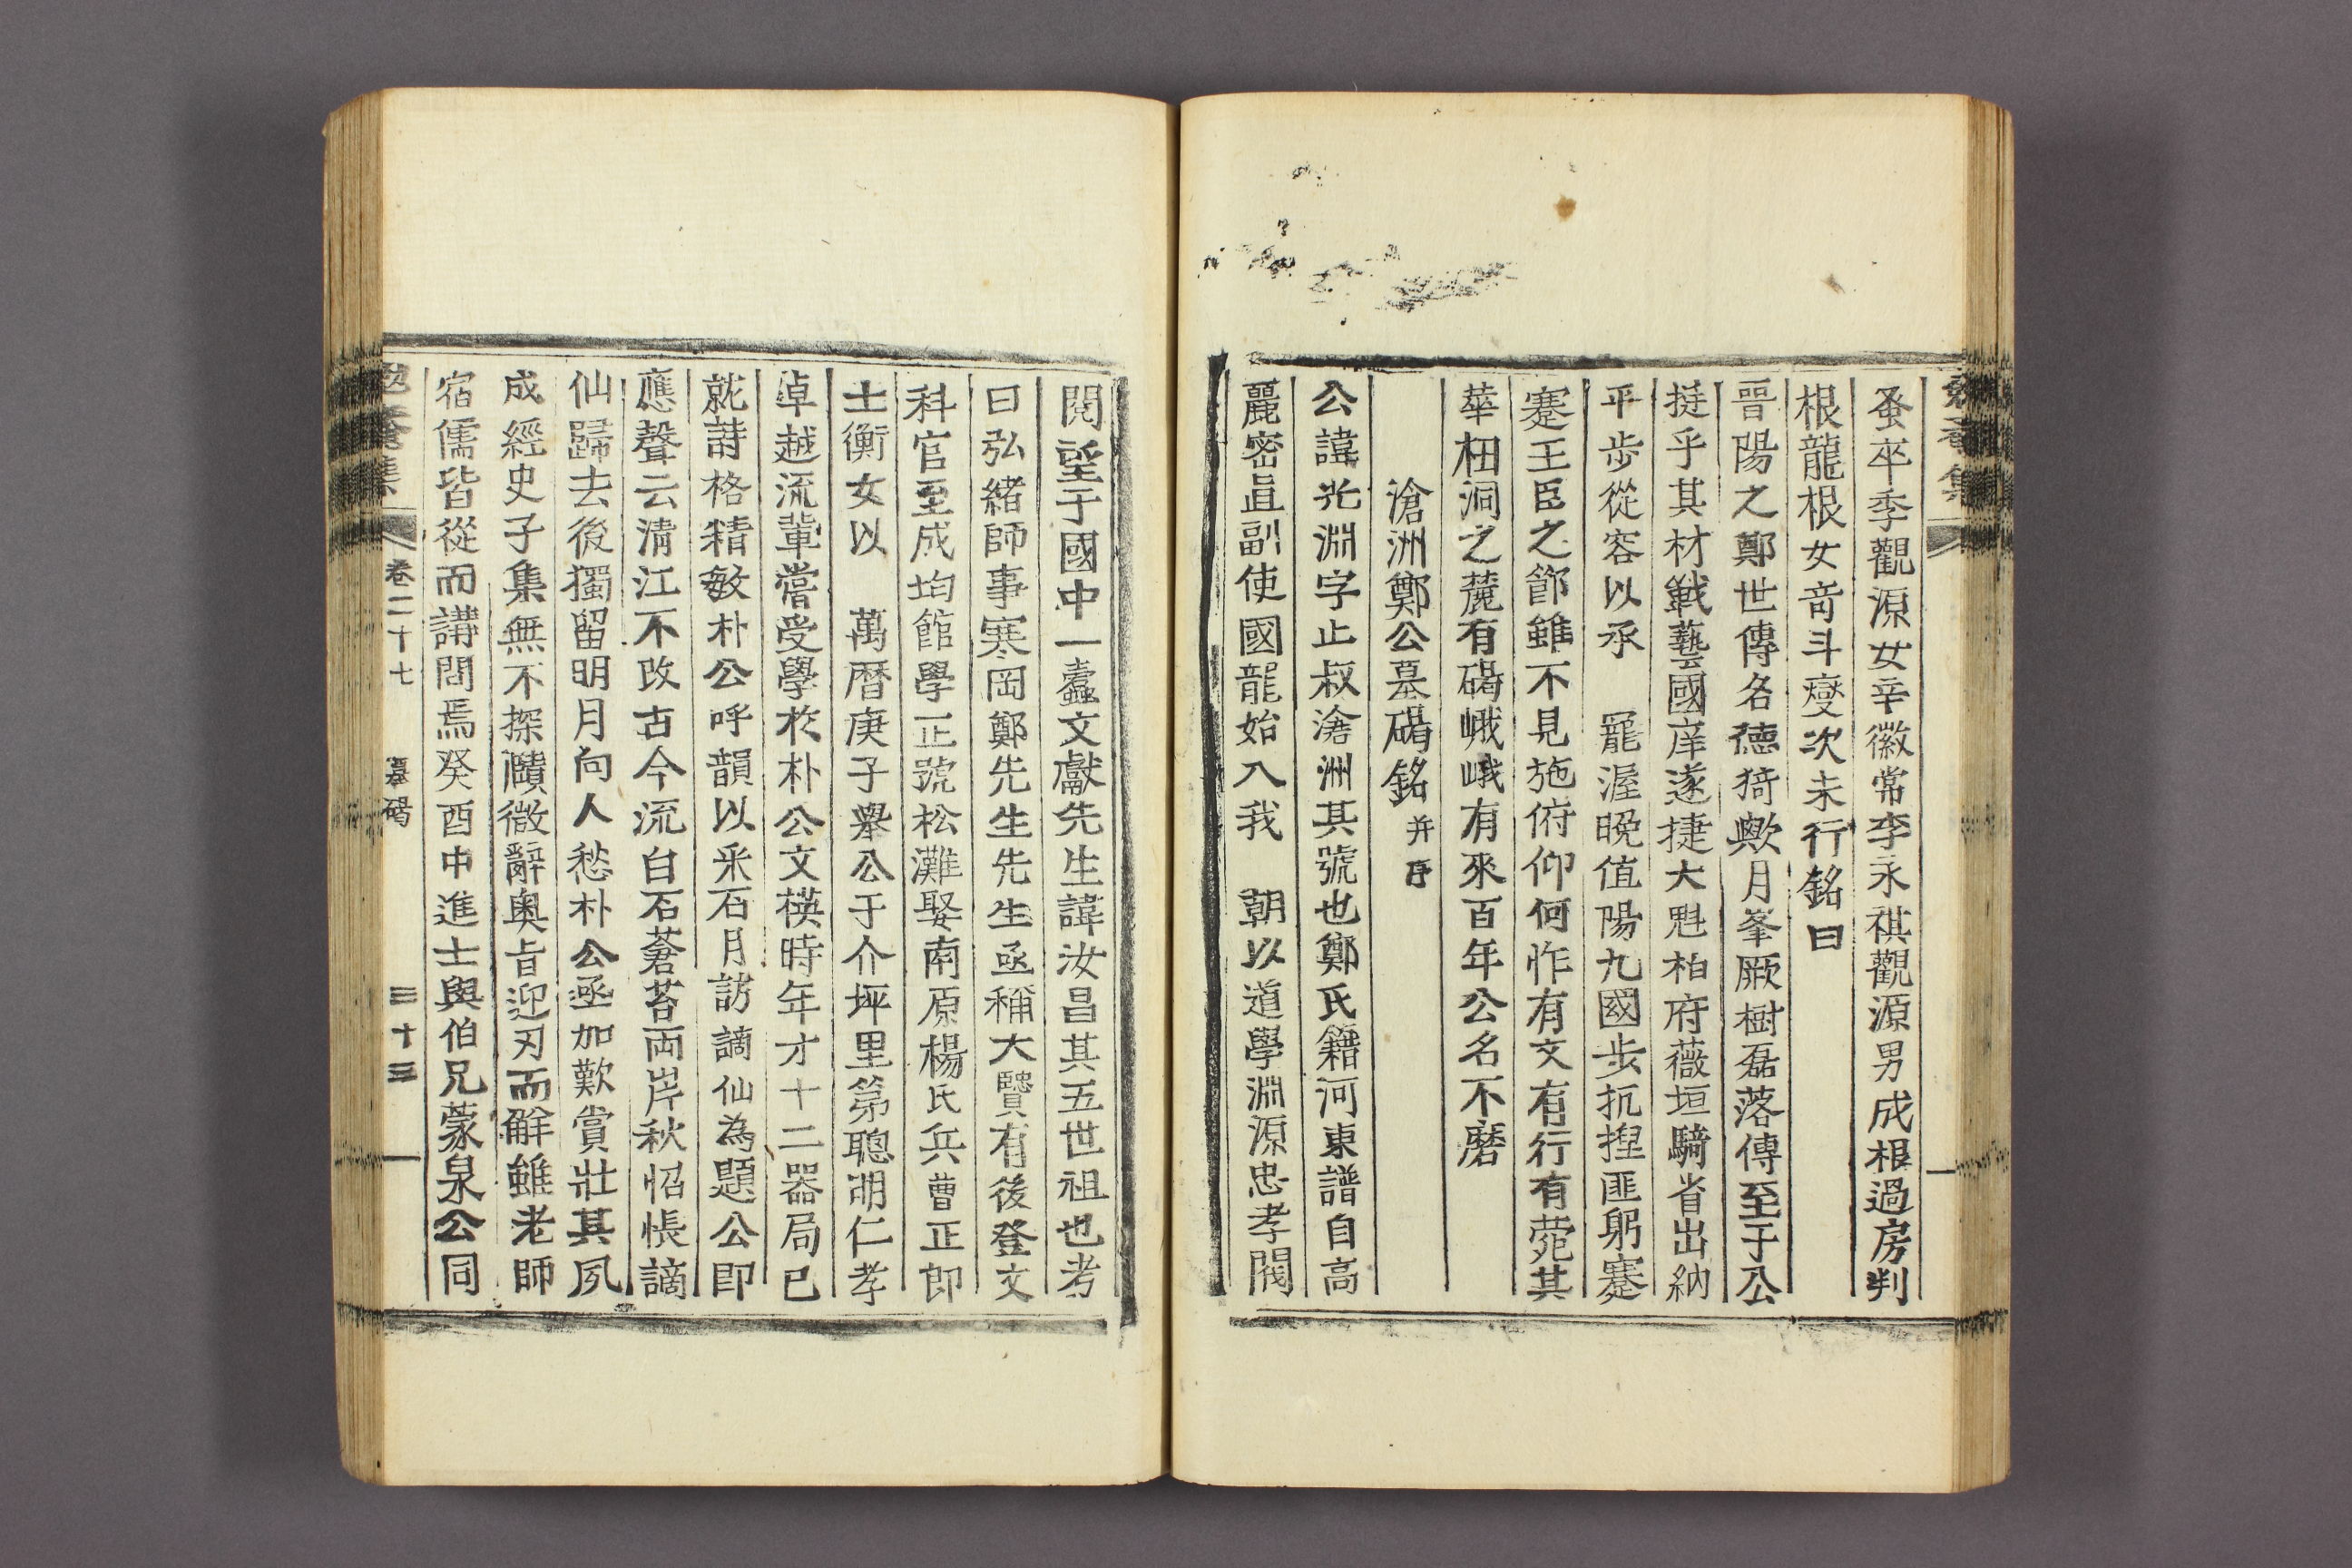 勉菴集
蚤卒季觀源女辛徽常李永祺觀源男成根過房判
根龍根女奇斗燮次未行銘曰
晉陽之鄭世傳名德猗歟月峯厥樹磊落傳至于公
挺乎其材戰藝國庠遂捷大魁柏府薇垣騎省出納
平步從容以承　寵渥晚值陽九國步扤捏匪躬蹇
蹇王臣之節雖不見施俯仰何怍有文有行有菀其
華杻洞之麓有碣峨峨有來百年公名不磨
滄洲鄭公墓碣銘 并序
公諱光淵字止叔滄洲其號也鄭氏籍河東譜自高
麗密直副使國龍始入我　朝以道學淵源忠孝閥
閱望于國中一蠹文獻先生諱汝昌其五世祖也考
曰弘緖師事寒岡鄭先生先生亟稱大贒有後登文
科官至成均館學正號松灘娶南原楊氏兵曹正郎
士衡女以　萬曆庚子擧公于介坪里第聰明仁孝
卓越流輩嘗受學於朴公文楧時年才十二器局已
就詩格精敏朴公呼韻以采石月訪謫仙為題公卽
應聲云淸江不改古今流白石蒼苔兩岸秋怊悵謫
仙歸去後獨留明月向人愁朴公亟加歎賞壯其夙
成經史子集無不探賾微辭奧旨迎刃而觧雖老師
宿儒皆從而講問焉癸酉中進士與伯兄蒙泉公同
勉菴集　卷二十七　墓碣　三十三